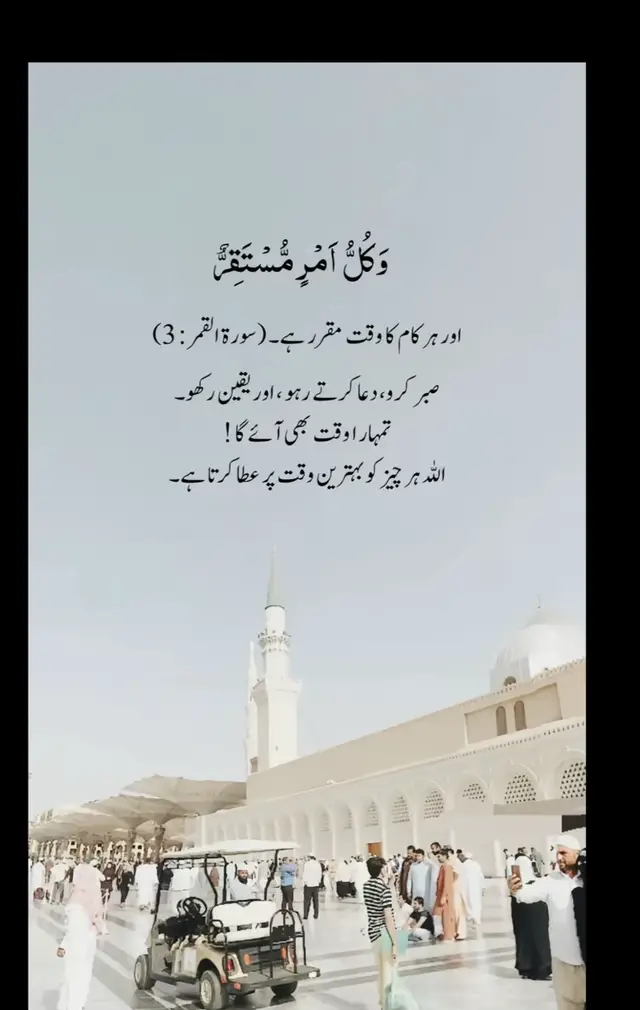 وَكُلُّ اَمْرٍ مُّسْتَقِرٌّ
اور ہر کام کا وقت مقرر ہے۔ (سورۃ القمر : 3)
صبر کرو، دعا کرتے رہو، اور یقین رکھو۔
تمہارا وقت بھی آئے گا !
اللہ ہر چیز کو بہترین وقت پر عطا کرتا ہے۔